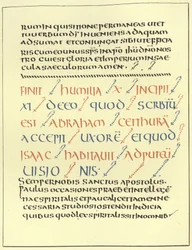 RUM INQUISITIONE PERMANEAS UTET
IUVERBUM DI INVENIENS ADAQUAM
ADSUMAT ET CONIUNGAT SIBI UT EFFICIA
RIS CUM EO UNUS SPS IN XPO IHU DNO NOS
TRO CUI EST GLORIA ET IMPERIUM IN SAE
CULA SAECULORUM AMEN
FINIT HUMILIA X INCIPIT
XI DE EO QUOD SCRIBTU
EST ABRAHAM CETHURA
ACCEPIT UXORE ET QUOD
ISAAC HABITAVIT AD PUTEU
VISIONIS
SEMPER NOBIS SANCTUS APOSTOLUS
PAULUS OCCASIONES PRAEBET INTELLEX
TIAE SPIRITALIS ET PAUCA LICET TAMEN NE
CESSARIA STUDIOSIS OSTENDIT INDICIA
QUIBUS QUOD LEX SPIRITALIS SIT IN OMNIB